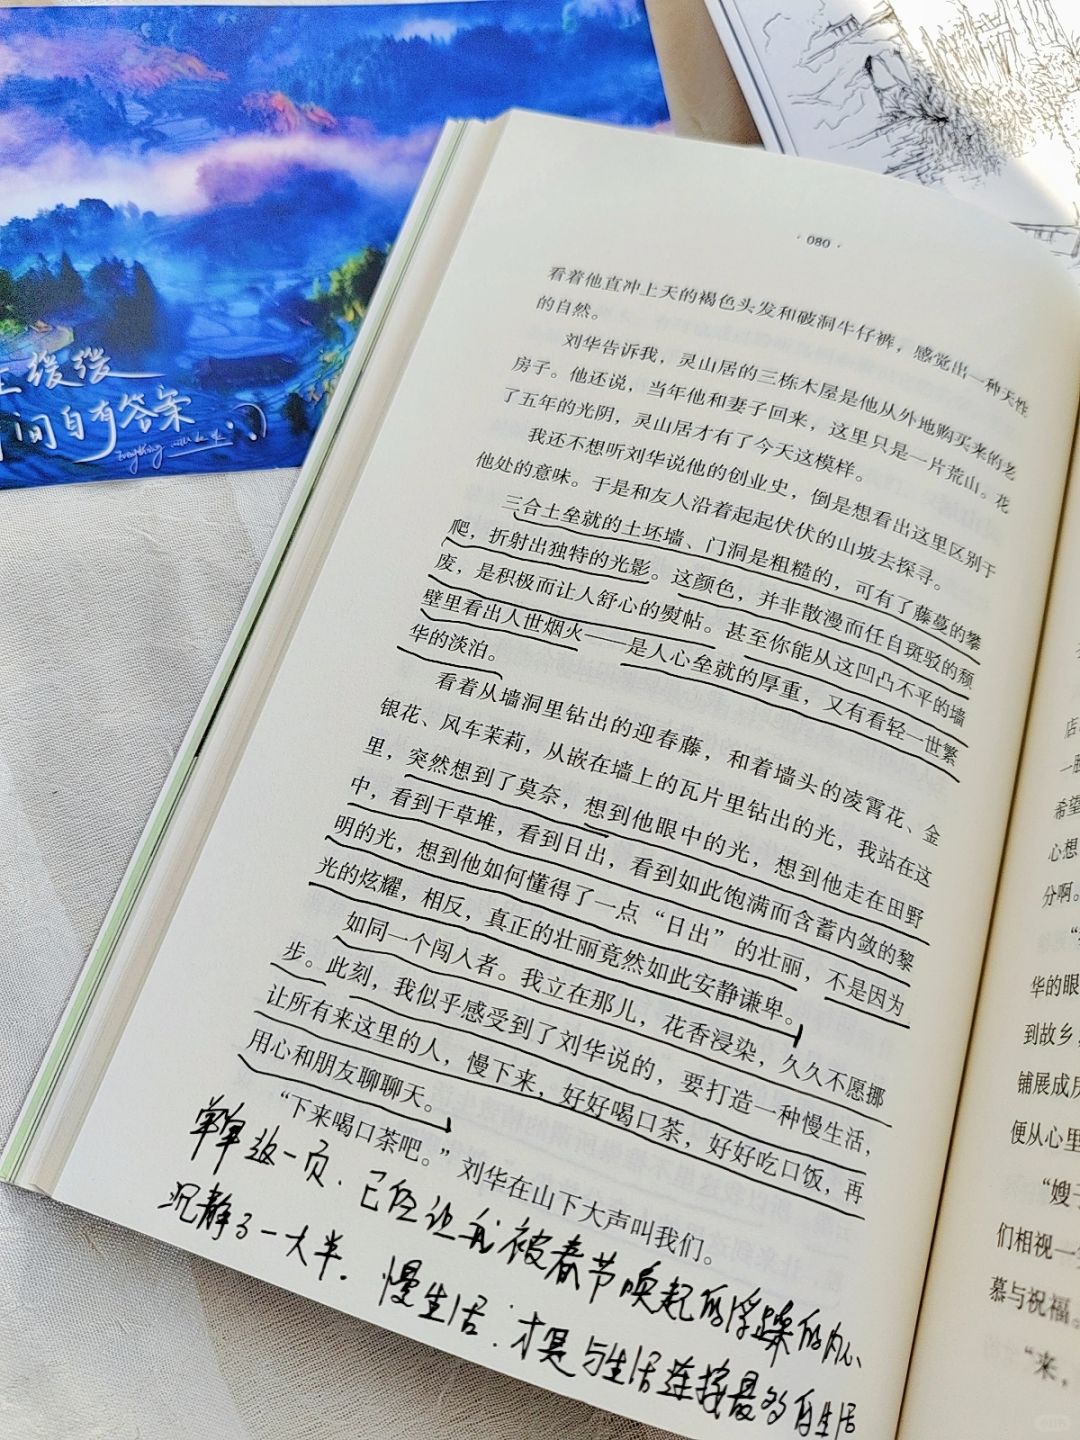 缓缓
间自有答案
Everything
· 080 ·
看着他直冲上天的褐色头发和破洞牛仔裤，感觉出一种天性
的自然。
刘华告诉我，灵山居的三栋木屋是他从外地购买来的老
房子。他还说，当年他和妻子回来，这里只是一片荒山。花
了五年的光阴，灵山居才有了今天这模样。
我还不想听刘华说他的创业史，倒是想看出这里区别于
他处的意味。于是和友人沿着起起伏伏的山坡去探寻。
三合土垒就的土坯墙、门洞是粗糙的，可有了藤蔓的攀
爬，折射出独特的光影。这颜色，并非散漫而任自斑驳的颓
废，是积极而让人舒心的熨帖。甚至你能从这凹凸不平的墙
壁里看出人世烟火——是人心垒就的厚重，又有看轻一世繁
华的淡泊。
看着从墙洞里钻出的迎春藤，和着墙头的凌霄花、金
银花、风车茉莉，从嵌在墙上的瓦片里钻出的光，我站在这
里，突然想到了莫奈，想到他眼中的光，想到他走在田野
中，看到干草堆，看到日出，看到如此饱满而含蓄内敛的黎
明的光，想到他如何懂得了一点“日出”的壮丽，不是因为
光的炫耀，相反，真正的壮丽竟然如此安静谦卑。
如同一个闯入者。我立在那儿，花香浸染，久久不愿挪
步。此刻，我似乎感受到了刘华说的，要打造一种慢生活，
让所有来这里的人，慢下来，好好喝口茶，好好吃口饭，再
用心和朋友聊聊天。
“下来喝口茶吧。”刘华在山下大声叫我们。
单单这一页．已经让我被春节唤起的浮躁的内心
沉静了一大半．慢生活．才是与生活连接最多的生活
店
一
希望
心想
分啊。
华的眼
到故乡，
铺展成
便从心里
“嫂子
们相视一
慕与祝福。
“来，